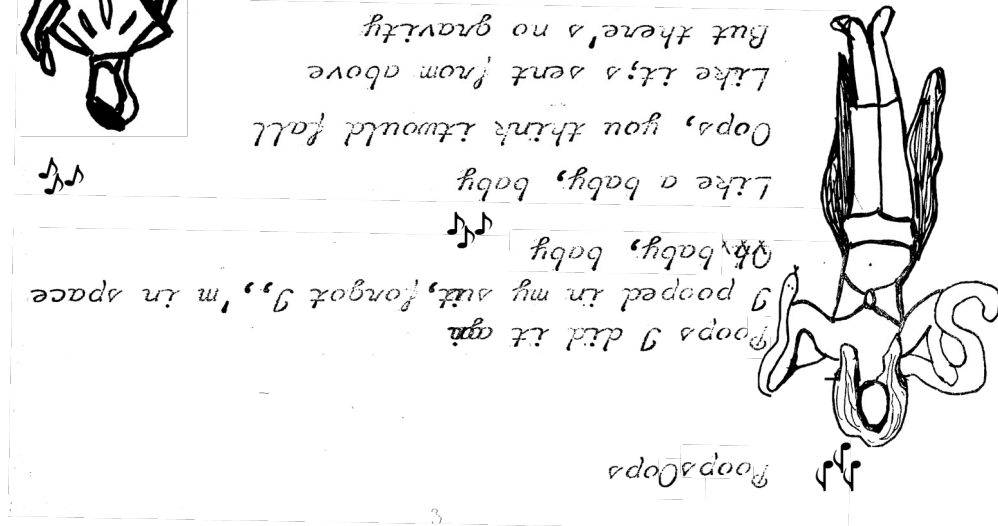 3
PoopsOops
Poops I did it
I pooped in my suit, forgot I,,'m in space
Oh baby, baby
Like a baby, baby
Oops, you think itwould fall
Like it;s sent from above
But there's no gravity